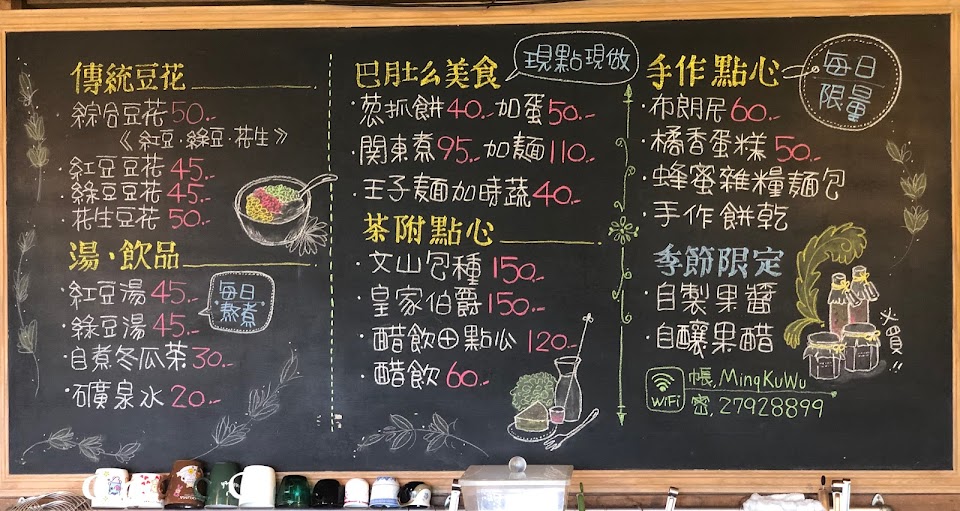 傳統豆花
綜合豆花50.-
《紅豆·綠豆·花生》
·紅豆豆花45.-
·綠豆豆花45.-
·花生豆花50.-
湯·飲品
·紅豆湯45.-
·綠豆湯45.-
·自煮冬瓜茶30.-
·礦泉水20.-
每日
熬煮
巴肚ㄠ美食
現點現做
·蔥抓餅40.-加蛋50.-
·関東煮95.-加麵110.-
·王子麵加時蔬40.-
茶附點心
·文山包種150.-
·皇家伯爵150.-
·醋飲⊕點心120.-
·醋飲60.-
手作點心
每日
限量
·布朗尼60.-
·橘香蛋糕50.-
·蜂蜜雜糧麵包
·手作餅乾
季節限定
·自製果醬
·自釀果醋
WiFi
帳,MingKuWu
密,27928899